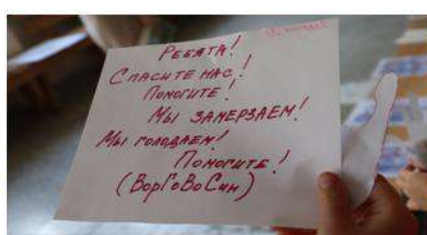 Ребята!
Спасите нас!
Помогите!
Мы замерзаем!
Мы голодаем!
Помогите!
(ВорГоВоСин)